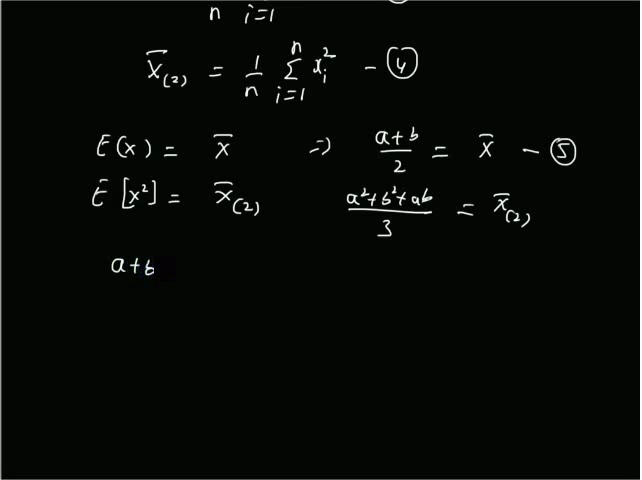 n i=1
X̄₍₂₎ = 1/n Σ_{i=1}^{n} xᵢ² – ④
E(x) = x̄ ⇒ (a+b)/2 = x̄ – ⑤
E[x²] = x̄₍₂₎ (a²+b²+ab)/3 = x̄₍₂₎
a+b